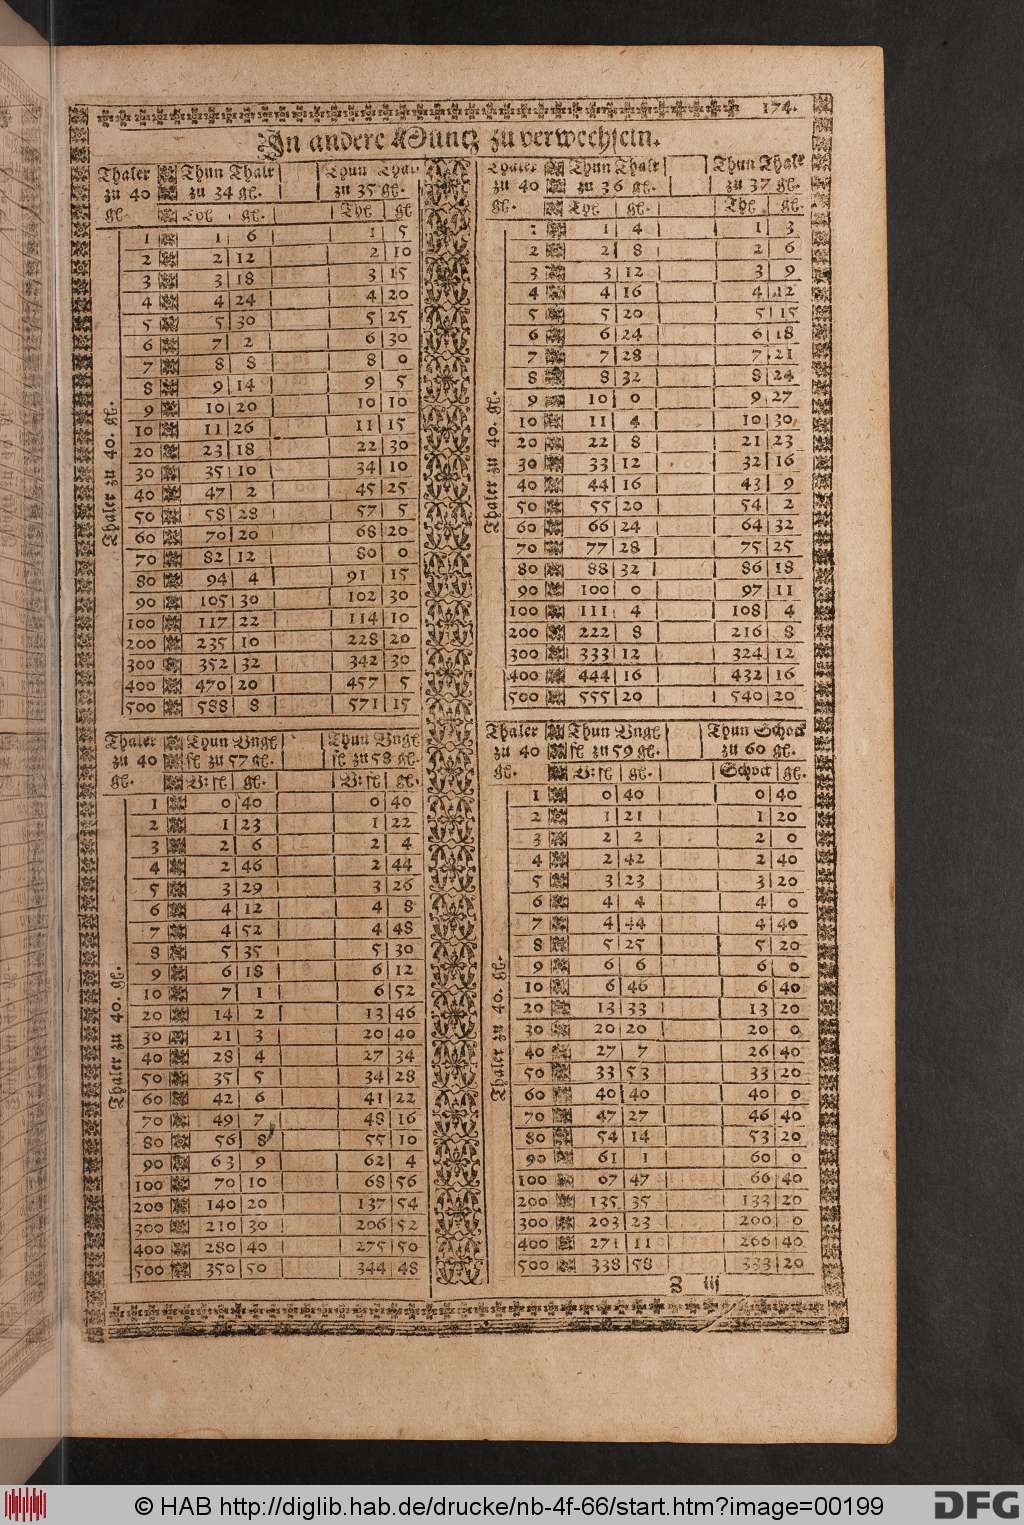 174.
In andere Müntz zu verwechseln.
Thaler zu 40 gl. | Thun Thalr zu 34 gl. | Thun Thalr zu 35 gl.
gl. | Thl | gl. | Thl | gl
Thaler zu 40. gl.
1 | 1 | 6 | 1 | 5
2 | 2 | 12 | 2 | 10
3 | 3 | 18 | 3 | 15
4 | 4 | 24 | 4 | 20
5 | 5 | 30 | 5 | 25
6 | 7 | 2 | 6 | 30
7 | 8 | 8 | 8 | 0
8 | 9 | 14 | 9 | 5
9 | 10 | 20 | 10 | 10
10 | 11 | 26 | 11 | 15
20 | 23 | 18 | 22 | 30
30 | 35 | 10 | 34 | 10
40 | 47 | 2 | 45 | 25
50 | 58 | 28 | 57 | 5
60 | 70 | 20 | 68 | 20
70 | 82 | 12 | 80 | 0
80 | 94 | 4 | 91 | 15
90 | 105 | 30 | 102 | 30
100 | 117 | 22 | 114 | 10
200 | 235 | 10 | 228 | 20
300 | 352 | 32 | 342 | 30
400 | 470 | 20 | 457 | 5
500 | 588 | 8 | 571 | 15
Thaler zu 40 gl. | Thun Thalr zu 36 gl. | Thun Thalr zu 37 gl.
gl. | Thl | gl. | Thl | gl.
Thaler zu 40. gl.
1 | 1 | 4 | 1 | 3
2 | 2 | 8 | 2 | 6
3 | 3 | 12 | 3 | 9
4 | 4 | 16 | 4 | 12
5 | 5 | 20 | 5 | 15
6 | 6 | 24 | 6 | 18
7 | 7 | 28 | 7 | 21
8 | 8 | 32 | 8 | 24
9 | 10 | 0 | 9 | 27
10 | 11 | 4 | 10 | 30
20 | 22 | 8 | 21 | 23
30 | 33 | 12 | 32 | 16
40 | 44 | 16 | 43 | 9
50 | 55 | 20 | 54 | 2
60 | 66 | 24 | 64 | 32
70 | 77 | 28 | 75 | 25
80 | 88 | 32 | 86 | 18
90 | 100 | 0 | 97 | 11
100 | 111 | 4 | 108 | 4
200 | 222 | 8 | 216 | 8
300 | 333 | 12 | 324 | 12
400 | 444 | 16 | 432 | 16
500 | 555 | 20 | 540 | 20
Thaler zu 40 gl. | Thun Vngl fl zu 57 gl. | Thun Vngl fl zu 58 gl.
gl. | V: fl | gl. | V: fl | gl.
Thaler zu 40. gl.
1 | 0 | 40 | 0 | 40
2 | 1 | 23 | 1 | 22
3 | 2 | 6 | 2 | 4
4 | 2 | 46 | 2 | 44
5 | 3 | 29 | 3 | 26
6 | 4 | 12 | 4 | 8
7 | 4 | 52 | 4 | 48
8 | 5 | 35 | 5 | 30
9 | 6 | 18 | 6 | 12
10 | 7 | 1 | 6 | 52
20 | 14 | 2 | 13 | 46
30 | 21 | 3 | 20 | 40
40 | 28 | 4 | 27 | 34
50 | 35 | 5 | 34 | 28
60 | 42 | 6 | 41 | 22
70 | 49 | 7 | 48 | 16
80 | 56 | 8 | 55 | 10
90 | 63 | 9 | 62 | 4
100 | 70 | 10 | 68 | 56
200 | 140 | 20 | 137 | 54
300 | 210 | 30 | 206 | 52
400 | 280 | 40 | 275 | 50
500 | 350 | 50 | 344 | 48
Thaler zu 40 gl. | Thun Vngl fl zu 59 gl. | Thun Schock zu 60 gl.
gl. | V: fl | gl. | Schock | gl.
Thaler zu 40. gl.
1 | 0 | 40 | 0 | 40
2 | 1 | 21 | 1 | 20
3 | 2 | 2 | 2 | 0
4 | 2 | 42 | 2 | 40
5 | 3 | 23 | 3 | 20
6 | 4 | 4 | 4 | 0
7 | 4 | 44 | 4 | 40
8 | 5 | 25 | 5 | 20
9 | 6 | 6 | 6 | 0
10 | 6 | 46 | 6 | 40
20 | 13 | 33 | 13 | 20
30 | 20 | 20 | 20 | 0
40 | 27 | 7 | 26 | 40
50 | 33 | 53 | 33 | 20
60 | 40 | 40 | 40 | 0
70 | 47 | 27 | 46 | 40
80 | 54 | 14 | 53 | 20
90 | 61 | 1 | 60 | 0
100 | 67 | 47 | 66 | 40
200 | 135 | 35 | 133 | 20
300 | 203 | 23 | 200 | 0
400 | 271 | 11 | 266 | 40
500 | 338 | 58 | 333 | 20
Z iij
© HAB http://diglib.hab.de/drucke/nb-4f-66/start.htm?image=00199
DFG